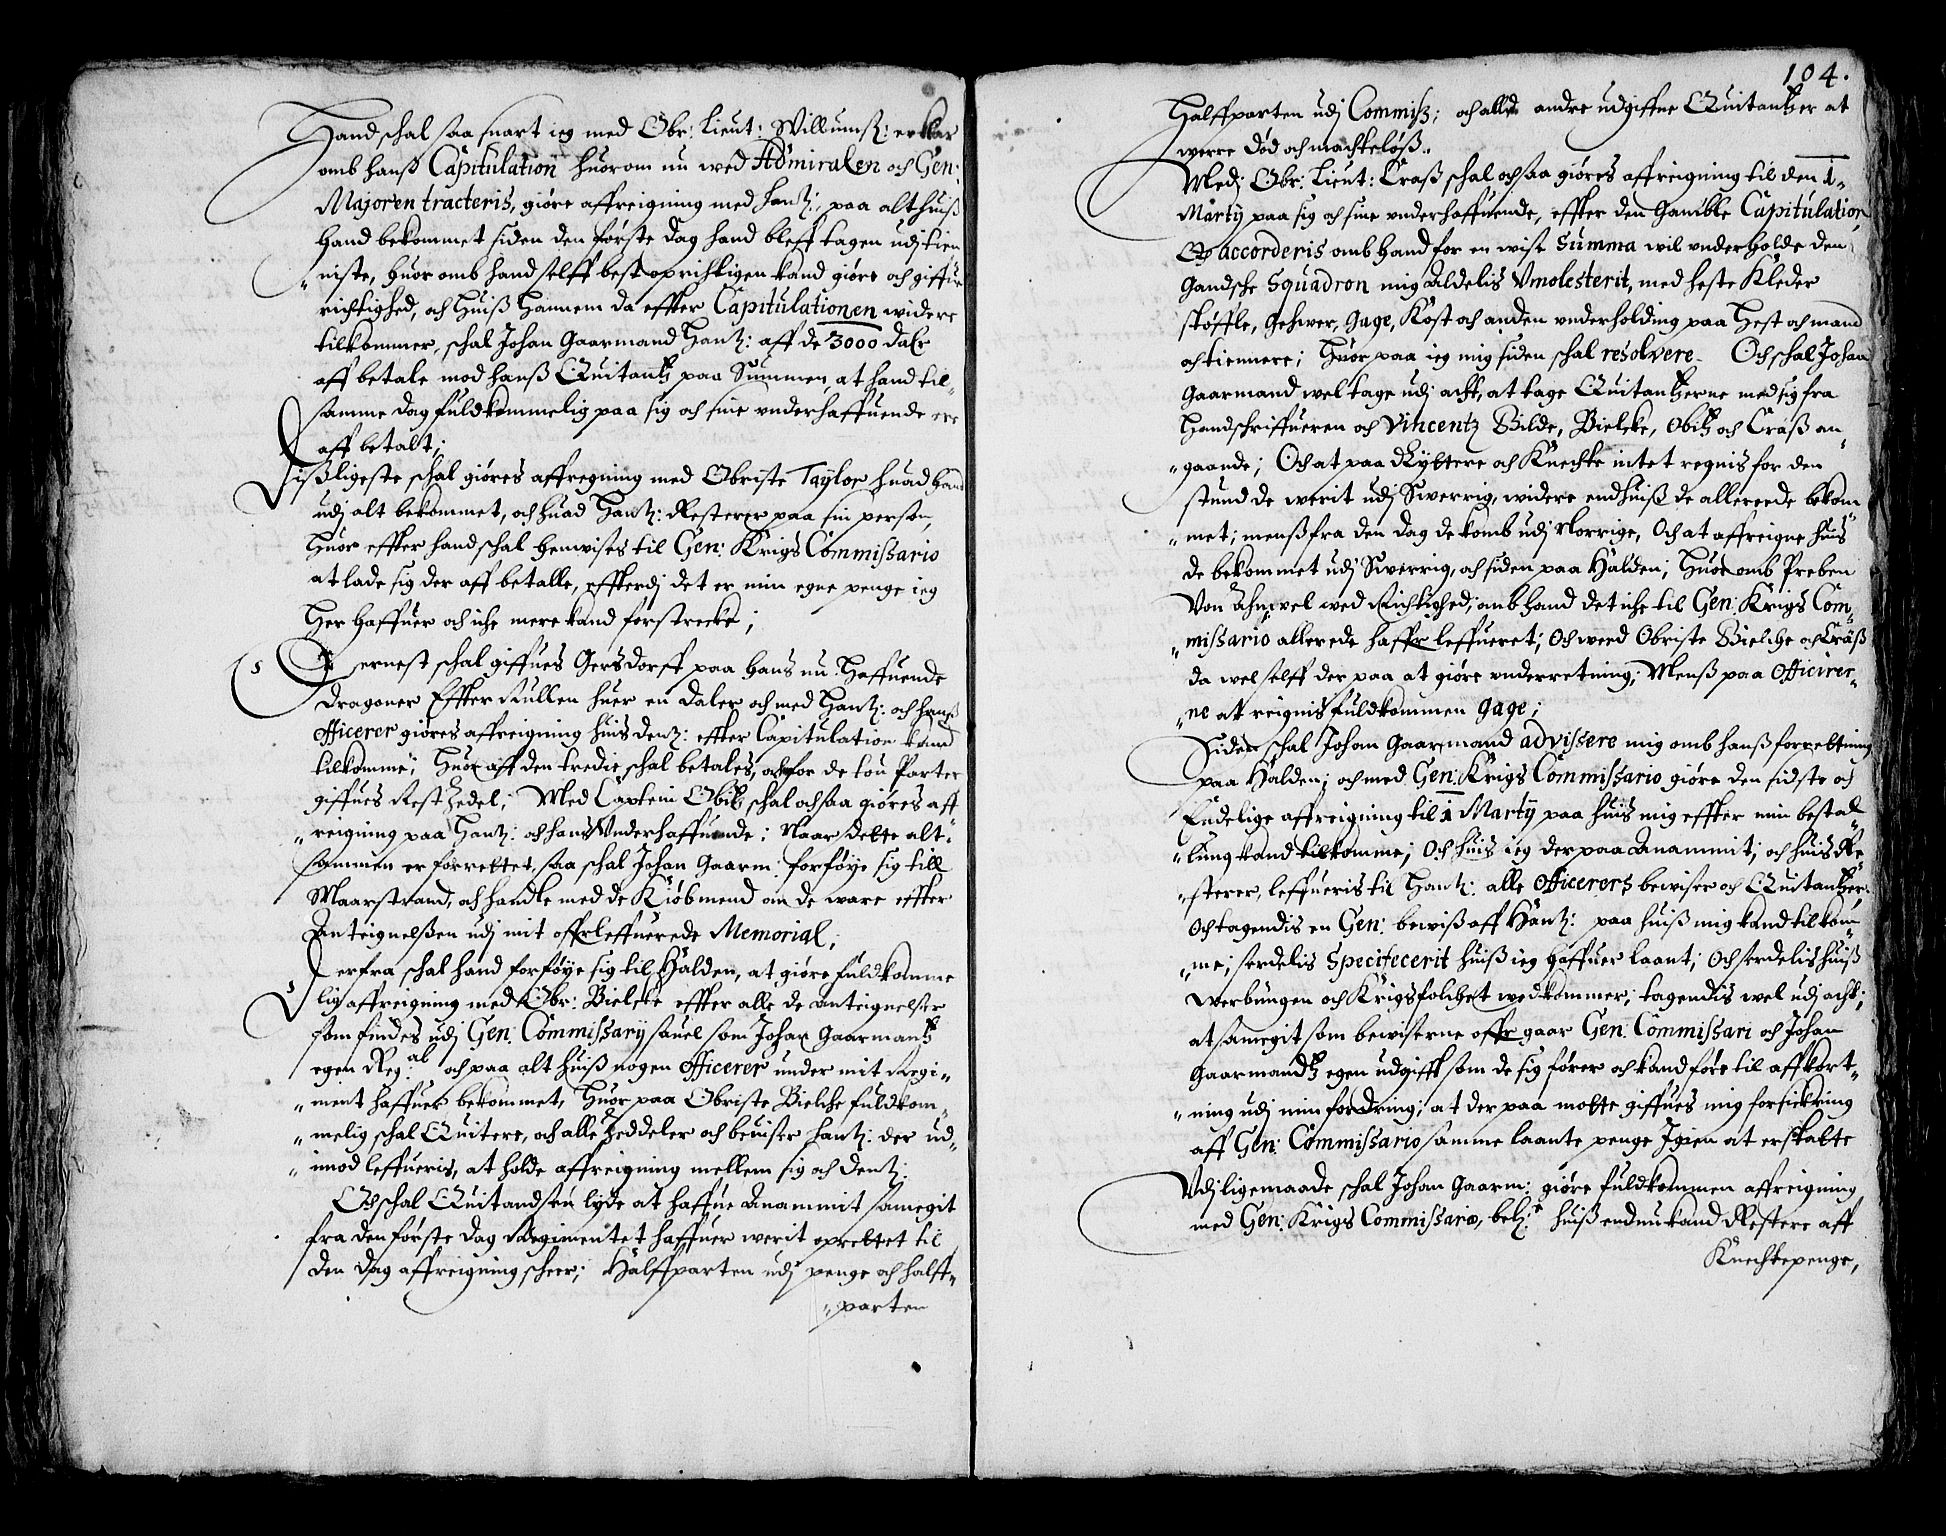 Hand schal saa snart ieg med Obr: Lieut: Willumsz: er klar
omb hanß Capitulation huorom nu wed Admiralen och Gen:
Majoren tracteris, giöre affreigning med hantz:, paa alt huiß
hand bekommet siden den förste dag hand bleff tagen udj tien
niste, huor omb hand selff best oprichtigen kand giöre och giffue
richtighed, och huiß hannem da effter Capitulationen widere
tilkommer, schal Johan Gaarmand hantz: aff de 3000 daler
aff betale mod hanß Quitantz paa Summen, at hand til„
samme dag fuldkommelig paa sig och sine underhaffuende ere
aff betalt;
Lißligeste schal giöres affregning med Obriste Taylor huad hand
udj alt bekommet, och huad hantz: Resterer paa sin person,
huor effter hand schal henwises til Gen: Krigs Commissario
at lade sig der aff betalle, effterdj det er min egne penge ieg
her haffuer och iche mere kand forstrecke;
Dernest schal giffues Gersdorff paa hans nu haffuende
dragoner effter Rullen huer en daler och med hantz: och hanß
officerer giöres affreigning huis dentz: effter Capitulation kand
tilkomme; huor aff den tredie schal betales, och for de tou Parter
giffues Rest Zedel; Med Captein Obitz schal och saa giöres aff
„reigning paa hantz: och hans Underhaffuende: Naar dette alt„
sammen er forrettet, saa schal Johan Gaarm: forföye sig till
Maarstrand, och handle med de Kiöbmend om de ware effter
Anteignelßen udj mit offrleffuerede Memorial;
Derfra schal hand forföye sig til Halden, at giöre fuldkomme
lig affreigning med Obr: Bielcke effter alle de anteignelser
som findes udj Gen: Commissarij sauel som Johan Gaarmantz
egen Reg:al och paa alt huiß nogen officerer under mit Regi„
„ment haffuer bekommet, huor paa Obriste Bielche fuldkom„
„melig schal Quitere, och alle Zeddeler och beuiser hantz: der ud„
„imod leffueris, at holde affreigning mellem sig och dentz:
Och schal Quitandsen lyde at haffue Anammit samegit
fra den förste dag Regimentet haffuer werit oprettet til
den dag affreigning scheer; Halffparten udj penge och halff„
„parten
104.
Halffparten udj Commiß; och alle andre udgiffne Quitantzer at
werre död och machtelöß.
Med Obr: Lieut: Craß schal och saa giöres affreigning til den 1„
Martij paa sig och sine underhaffuende, effter den Gamble Capitulation
Och accorderis omb hand for en wist Summa wil underholde den
Gandsche Squadron mig Aldelis Vmolesterit, med heste Kleder
stöffle, gehwer, gage, Kost och anden underholding paa hest och mand
och tiennere; huor paa ieg mig siden schal resolvere. Och schal Johan
Gaarmand wel tage udj acht, at tage Quitantzerne med sig fra
Handschriffueren och Vincentz Bilde, Bielcke, Obitz och Craß an„
„gaande; Och at paa Ryttere och Knechte intet regnis for den
stund de werit udj Swerrig, widere end huiß de allereede bekom„
„met; menß fra den dag de komb udj Norrige, Och at affreigne huis
de bekommet udj Swerrig, och siden paa Halden; huor omb Preben
Von Ahn wel wed Richtighed; omb hand det iche til Gen: Krigs Com„
„missario allerede haffr leffueret; Och werd Obriste Bielche och Craß
da wel selff der paa at giöre underretning; Menß paa officirer„
„ne at reignis fuldkommen gage;
Siden schal Johan Gaarmand advissere mig omb hanß forrettning
paa Halden; och med Gen: Krigs Commissario giöre den sidste och
Endelige affreigning til 1 Martij paa huis mig effter min bestal„
„lung kand tilkomme; Och huis ieg der paa Anammit; och huis Re„
„sterer, leffueris til hantz: alle officerers bewiser och Quitantzer:
Och tagendis en Gen: bewiß aff hantz: paa huiß mig kand tilkom„
„me; serdelis Specificerit huiß ieg haffuer laant; Och serdelis huiß
Werbungen och Krigsfolchet wedkommer; tagendis wel udj acht;
at samegit som bewiserne offr gaar Gen: Commissari och Johan
Gaarmandtz egen udgifft som de sig förer och kand före til affkort„
„ning udj min fordring; at der paa motte giffues mig forsickring
aff Gen: Commissario samme laante penge Igien at erstatte
Udj ligemaade schal Johan Gaarm: giöre fuldkommen affreigning
med Gen: Krigs Commissario, huiß endnu kand Restere aff
Knechtepenge,